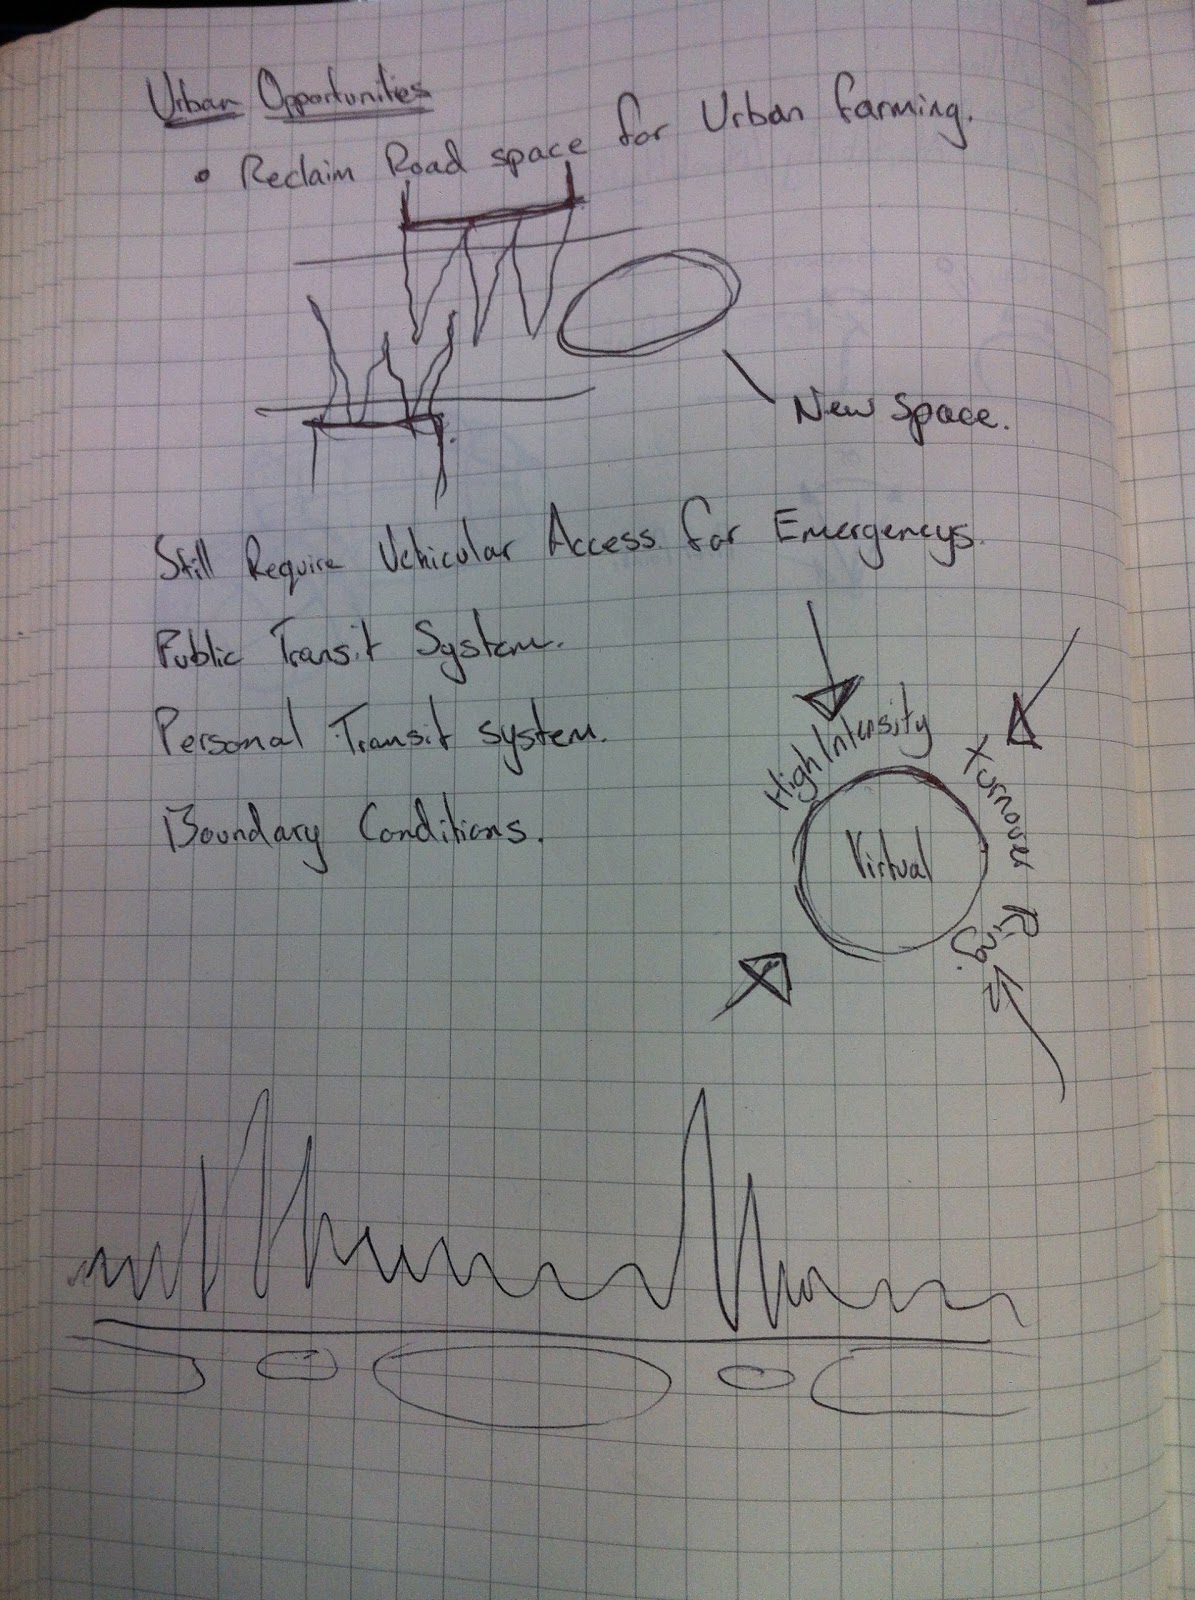 Urban Opportunities
• Reclaim Road space for Urban farming.
New space.
Still Require Vehicular Access for Emergencys.
Public Transit System.
Personal Transit system.
Boundary Conditions.
High Intensity Turnover Ring.
Virtual